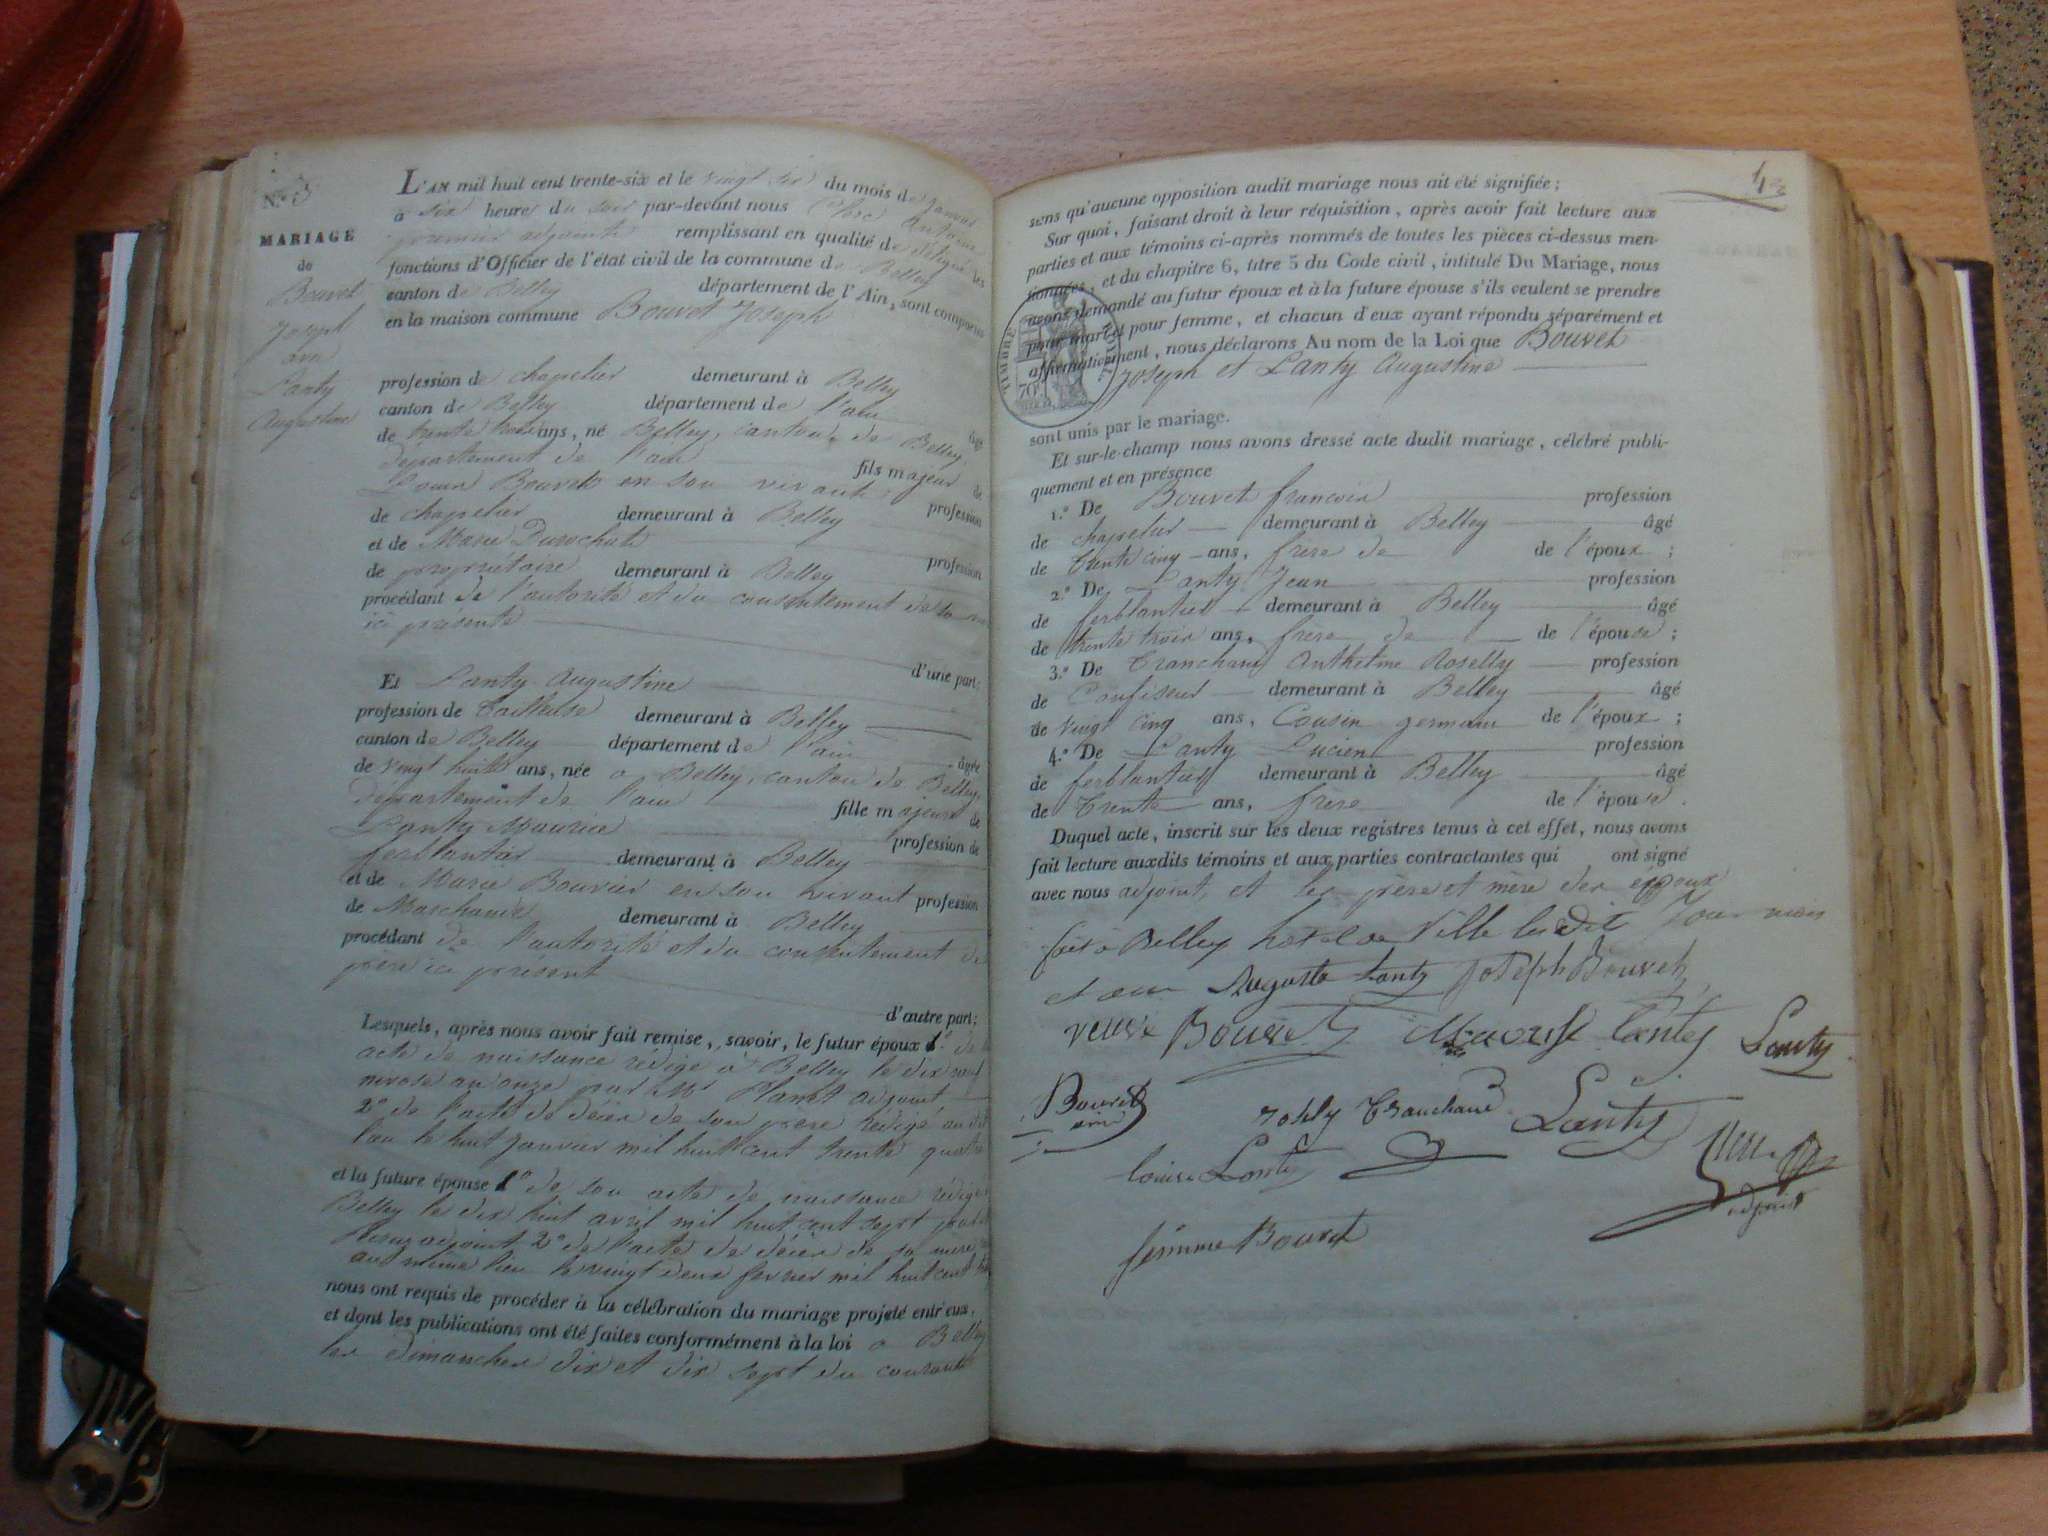 N.º 3
MARIAGE
de
Bouvet
Joseph
avec
Lanty
Augustine
L'AN mil huit cent trente-six et le vingt six du mois de janvier
à six heure du soir par-devant nous Antoine
premier adjoint remplissant en qualité de délégué les
fonctions d'Officier de l'état civil de la commune de Belley
canton de Belley département de l'Ain, sont comparus
en la maison commune Bouvet Joseph
profession de chapelier demeurant à Belley
canton de Belley département de l'ain âgé
de trente trois ans, né Belley, canton de Belley
département de l'ain fils majeur de
Louis Bouvet en son vivant profession
de chapelier demeurant à Belley
et de Marie Durochat profession
de propriétaire demeurant à Belley
procédant de l'autorité et du consentement de sa mere
ici présente
d'une part;
Et Lanty Augustine
profession de Tailleuse demeurant à Belley
canton de Belley département de l'ain âgée
de vingt huit ans, née a Belley, canton de Belley,
département de l'ain fille majeure de
Lanty Maurice profession de
ferblantier demeurant à Belley
et de Marie Bouvier en son vivant profession
de Marchande demeurant à Belley
procédant de l'autorité et du consentement de
père ici présent
d'autre part;
Lesquels, après nous avoir fait remise, savoir, le futur époux 1.º de
acte de naissance rédigé à Belley le dix neuf
nivose an onze par Mr adjoint
2º de l'acte de décès de son père rédigé au dit
lieu le huit janvier mil huit cent trente quatre
et la future épouse 1º de son acte de naissance rédigé
Belley le dix huit avril mil huit cent sept
adjoint 2º de l'acte de décès de sa mere
au même lieu le vingt deux fevrier mil huit cent
nous ont requis de procéder à la célébration du mariage projeté entr'eux,
et dont les publications ont été faites conformément à la loi a Belley
les dimanches dix et dix sept du courant
4
sens qu'aucune opposition audit mariage nous ait été signifiée;
Sur quoi, faisant droit à leur réquisition, après avoir fait lecture aux
parties et aux témoins ci-après nommés de toutes les pièces ci-dessus men-
tionnées, et du chapitre 6, titre 5 du Code civil, intitulé Du Mariage, nous
avons demandé au futur époux et à la future épouse s'ils veulent se prendre
pour mari et pour femme, et chacun d'eux ayant répondu séparément et
affirmativement, nous déclarons Au nom de la Loi que Bouvet
Joseph et Lanty Augustine
TIMBRE ROYAL
70
sont unis par le mariage.
Et sur-le-champ nous avons dressé acte dudit mariage, célébré publi-
quement et en présence
1.º De Bouvet francois profession
de chapelier demeurant à Belley âgé
de Trente cinq ans, frere de de l'époux;
2.º De Lanty Jean profession
de ferblantier demeurant à Belley âgé
de trente trois ans, frère de de l'épouse;
3.º De Tranchand Anthelme Roselly profession
de Confiseur demeurant à Belley âgé
de vingt cinq ans, Cousin germain de l'époux;
4.º De Lanty Lucien profession
de ferblantier demeurant à Belley âgé
de Trente ans, frere de l'épouse.
Duquel acte, inscrit sur les deux registres tenus à cet effet, nous avons
fait lecture auxdits témoins et aux parties contractantes qui ont signé
avec nous adjoint, et les père et mère des époux
fait à Belley hotel de Ville les dit Jour mois
et an Auguste Lanty Joseph Bouvet
veuve Bouvet Maurise Lanty Lanty
Bouvet
Rosely Tranchand Lanty
Louise Lanty
adjoint
femme Bouvet